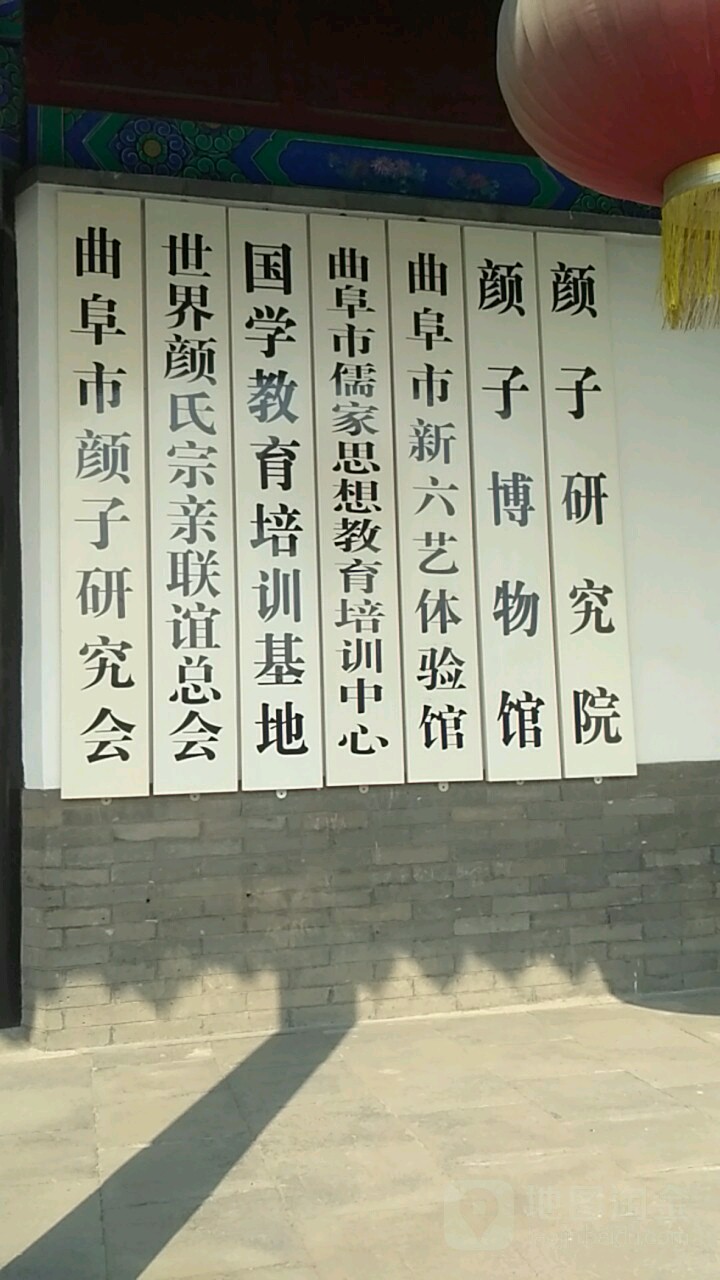 颜子研究院
颜子博物馆
曲阜市新六艺体验馆
曲阜市儒家思想教育培训中心
国学教育培训基地
世界颜氏宗亲联谊总会
曲阜市颜子研究会